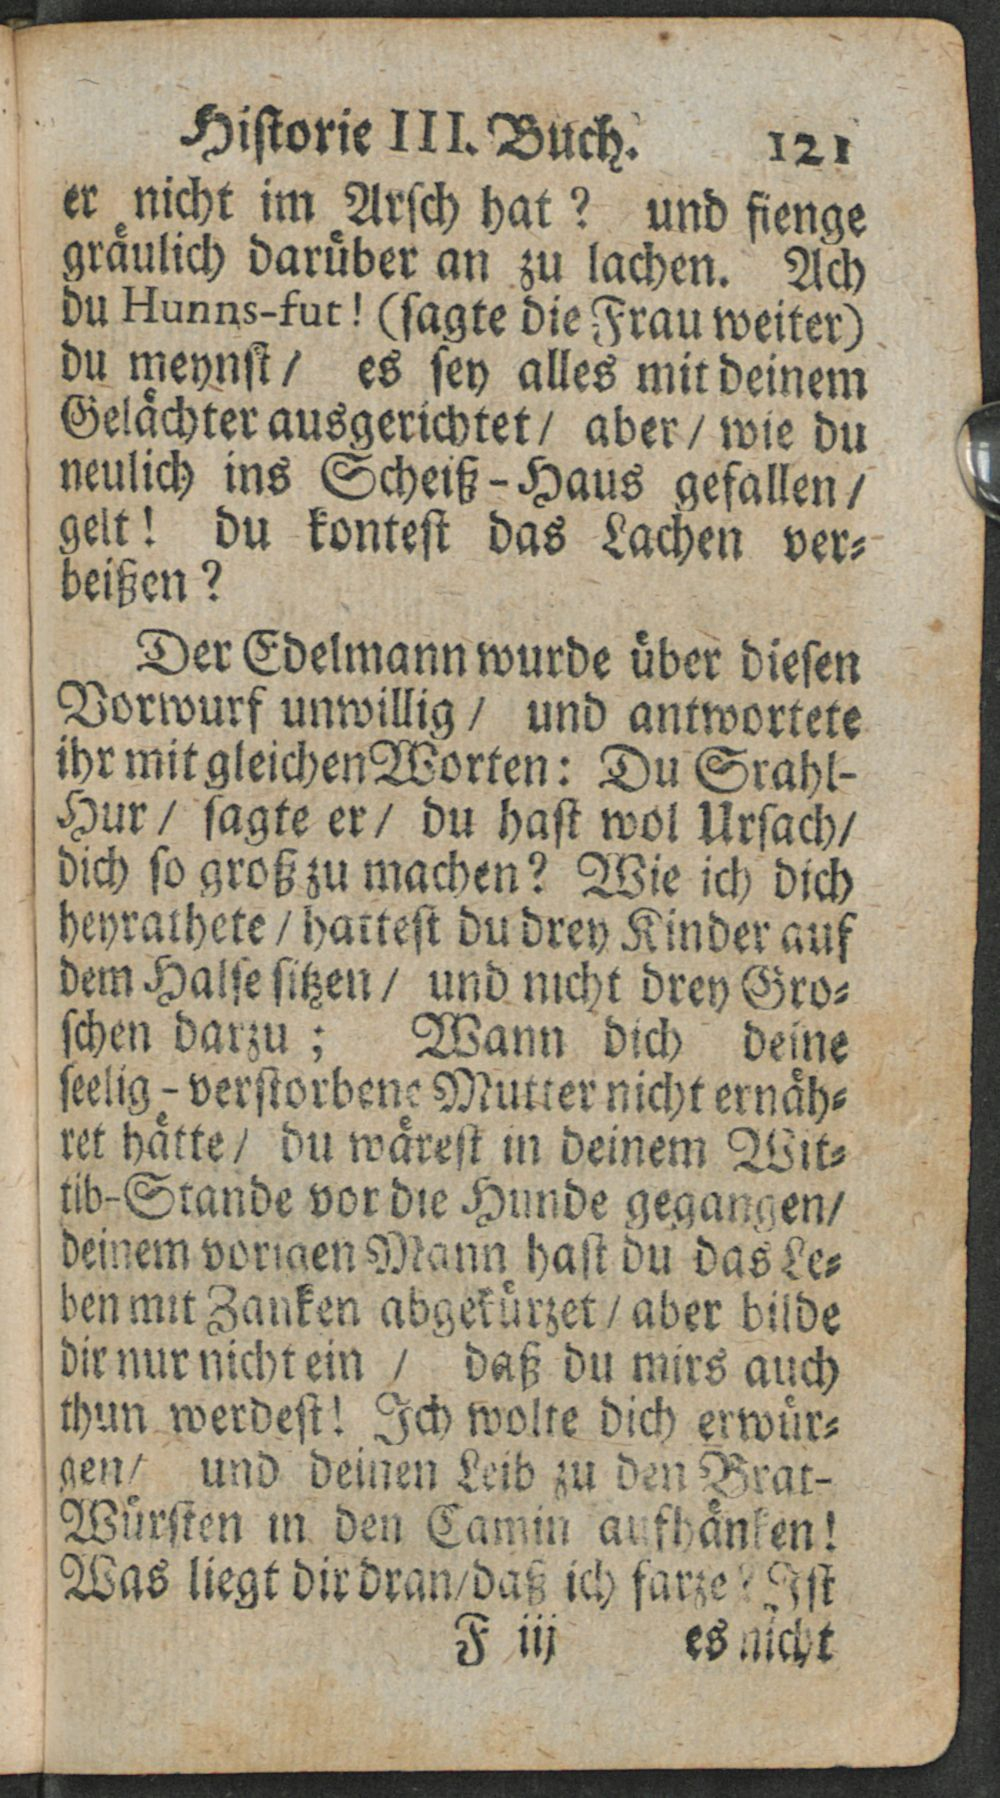 Hiſtorie III. Buch. 121
er nicht im Arſch hat ? und fienge
graͤulich daruͤber an zu lachen. Ach
du Hunns-fut! (ſagte die Frau weiter)
du meynſt / es ſey alles mit deinem
Gelaͤchter ausgerichtet / aber / wie du
neulich ins Scheiß-Haus gefallen /
gelt! du konteſt das Lachen ver⸗
beißen ?
Der Edelmann wurde uͤber dieſen
Vorwurf unwillig / und antwortete
ihr mit gleichen Worten: Du Srahl-
Hur / ſagte er / du haſt wol Urſach /
dich ſo groß zu machen? Wie ich dich
heyrathete / hatteſt du drey Kinder auf
dem Halſe ſitzen / und nicht drey Gro⸗
ſchen darzu ; Wann dich deine
ſeelig-verſtorbene Mutter nicht ernaͤh⸗
ret haͤtte / du waͤreſt in deinem Wit⸗
tib-Stande vor die Hunde gegangen /
deinem vorigen Mann haſt du das Le⸗
ben mit Zanken abgekuͤrzet / aber bilde
dir nur nicht ein / daß du mirs auch
thun werdeſt! Ich wolte dich erwuͤr⸗
gen / und deinen Leib zu den Brat-
Wuͤrſten in den Camin aufhaͤnken!
Was liegt dir dran / daß ich farze? Iſt
F iij es nicht